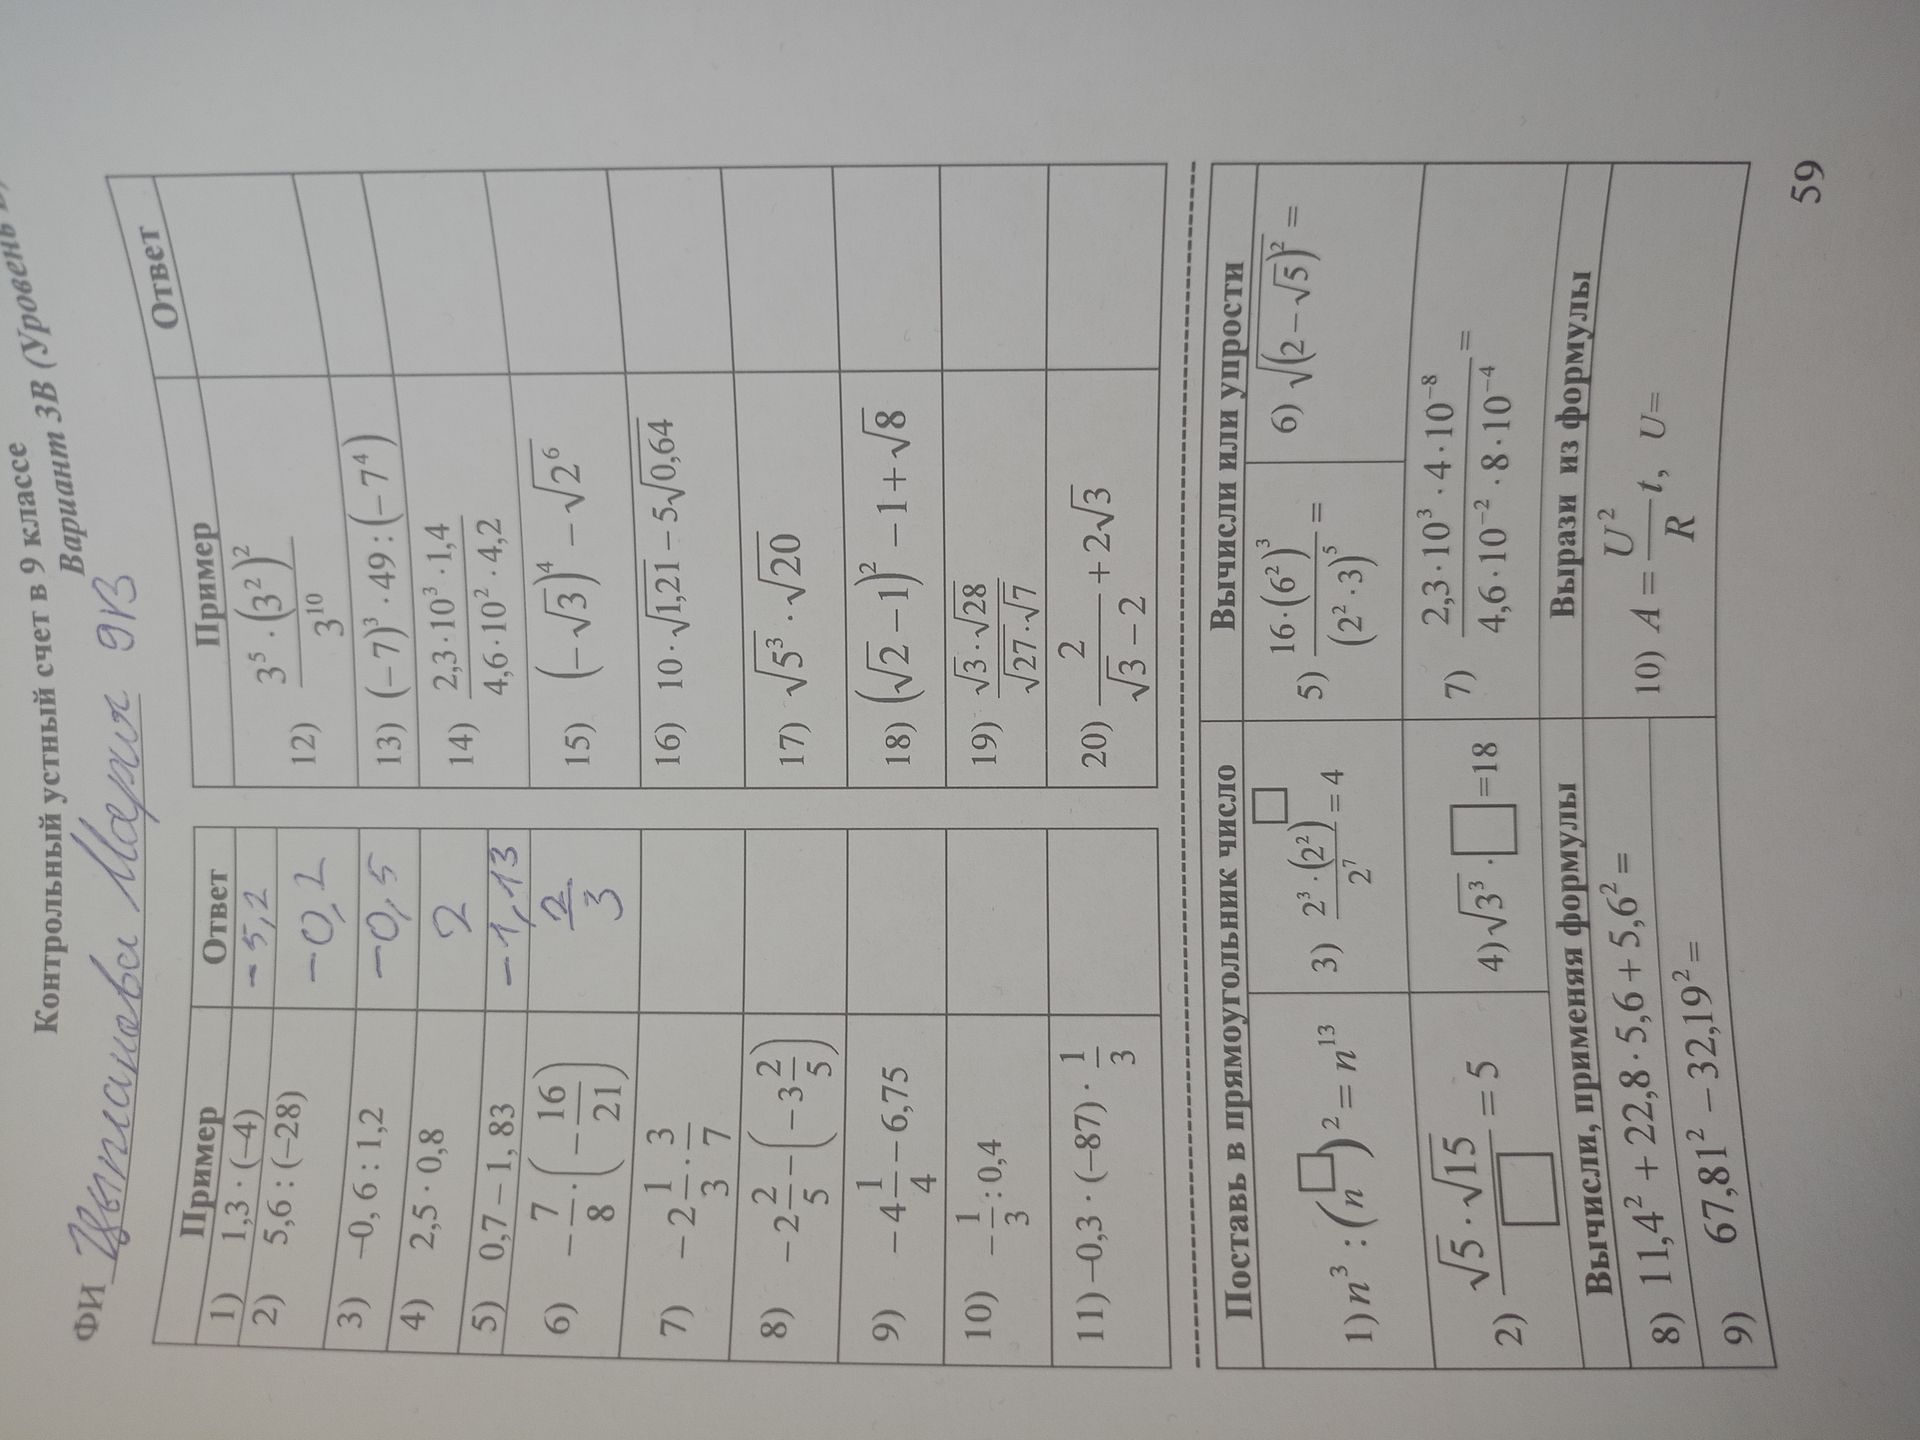 Контрольный устный счет в 9 классе
Вариант 3В (Уровень
ФИ Мария 9В
Пример Ответ
1) 1,3 · (–4) –5,2
2) 5,6 : (–28) –0,2
3) –0,6 : 1,2 –0,5
4) 2,5 · 0,8 2
5) 0,7 – 1,83 –1,13
6) –7/8 · (–16/21) 2/3
7) –2 1/3 · 3/7
8) –2 2/5 – (–3 2/5)
9) –4 1/4 – 6,75
10) –1/3 : 0,4
11) –0,3 · (–87) · 1/3
Пример Ответ
12) 3⁵ · (3²)² / 3¹⁰
13) (–7)³ · 49 : (–7⁴)
14) 2,3 · 10³ · 1,4 / 4,6 · 10² · 4,2
15) (–√3)⁴ – √2⁶
16) 10 · √1,21 – 5√0,64
17) √5³ · √20
18) (√2 – 1)² – 1 + √8
19) √3 · √28 / √27 · √7
20) 2 / √3 – 2 + 2√3
Поставь в прямоугольник число
1) n³ : (n^□)² = n¹³
2) √5 · √15 / □ = 5
3) 2³ · (2²)^□ / 2⁷ = 4
4) √3³ · □ = 18
Вычисли или упрости
5) 16 · (6²)³ / (2² · 3)⁵ =
6) √(2 – √5)² =
7) 2,3 · 10³ · 4 · 10⁻⁸ / 4,6 · 10⁻² · 8 · 10⁻⁴ =
Вычисли, применяя формулы
8) 11,4² + 22,8 · 5,6 + 5,6² =
9) 67,81² – 32,19² =
Вырази из формулы
10) A = U²/R t, U =
59